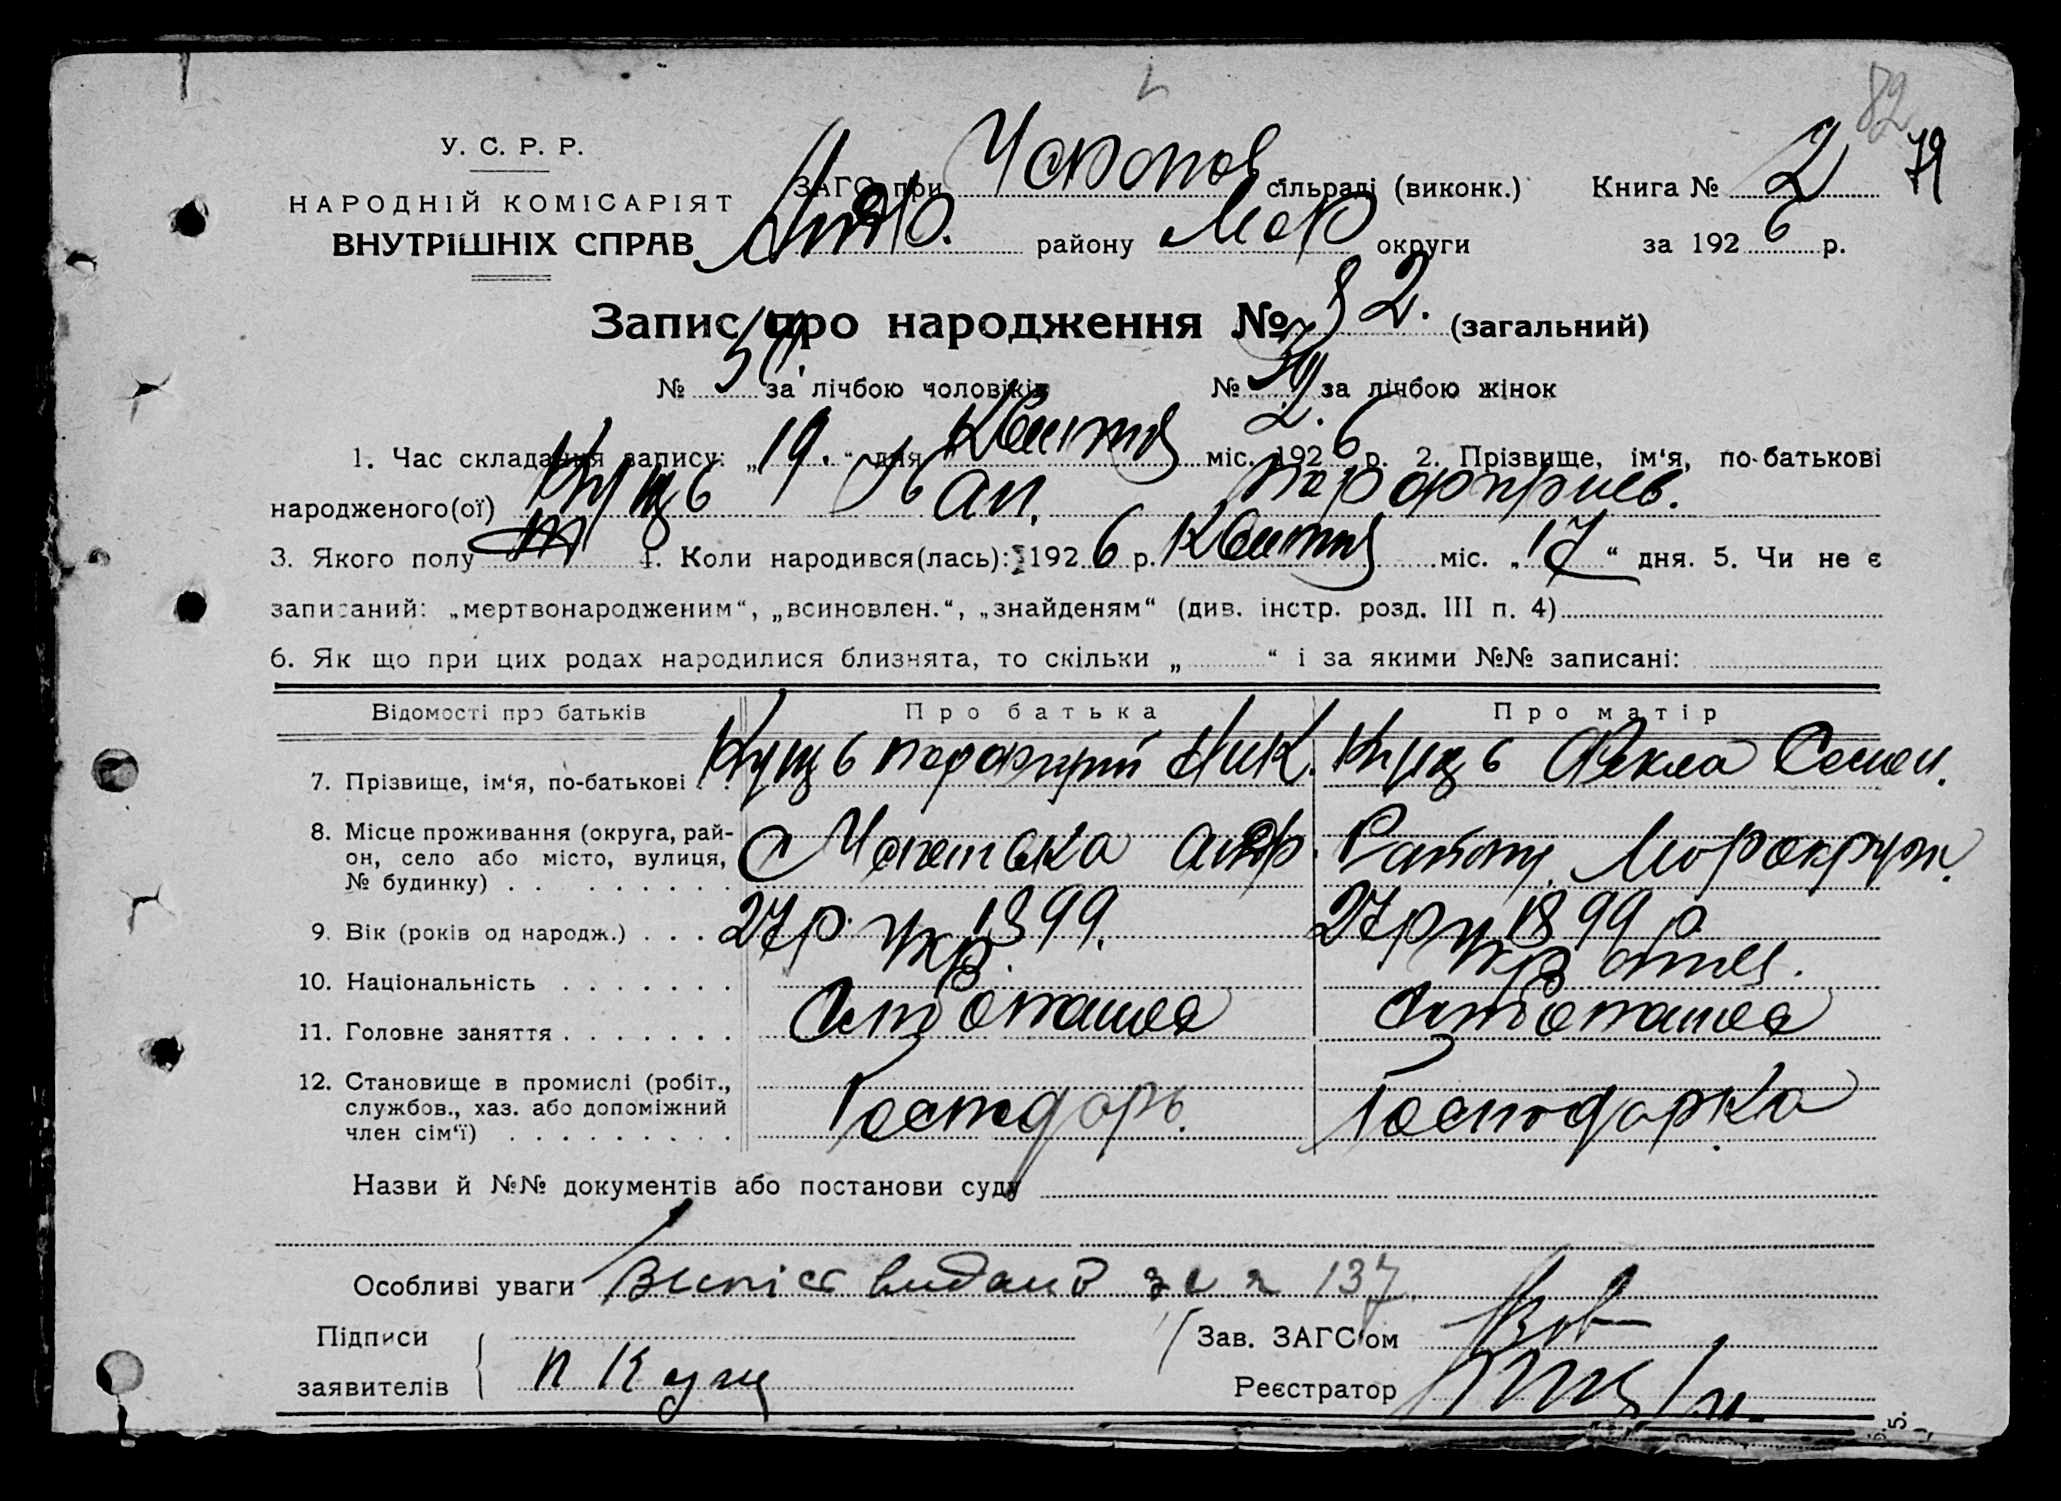 82
79
У. С. Р. Р.
НАРОДНІЙ КОМІСАРІЯТ
ВНУТРІШНІХ СПРАВ
ЗАГС при сільраді (виконк.) Книга № 2
району округи за 1926 р.
Запис про народження № 82. (загальний)
№ за лічбою чоловіків № за лічбою жінок
1. Час складання запису: „19.“ дня „Квитня міс. 1926 р. 2. Прізвище, ім‘я, по-батькові
народженого(ої) Кущь Иван.
3. Якого полу 4. Коли народився(лась): 1926 р. Квитня міс. „17“ дня. 5. Чи не є
записаний: „мертвонародженим“, „всиновлен.“, „знайденям“ (див. інстр. розд. III п. 4)
6. Як що при цих родах народилися близнята, то скільки „ “ і за якими №№ записані:
Відомості про батьків Про батька Про матір
7. Прізвище, ім‘я, по-батькові Кущь Порфирий Ник. Кущь Фекла Семен.
8. Місце проживання (округа, рай-
он, село або місто, вулиця,
№ будинку)
9. Вік (років од народж.) 27 р. 1899. 27 р 1899 р
10. Національність Укр. Укр
11. Головне заняття
12. Становище в промислі (робіт.,
службов., хаз. або допоміжний
член сім‘ї) Господорь. Господорка
Назви й №№ документів або постанови суду
Особливі уваги Випіс видано за № 137
Підписи
заявителів П Кущ
Зав. ЗАГС‘ом
Реєстратор